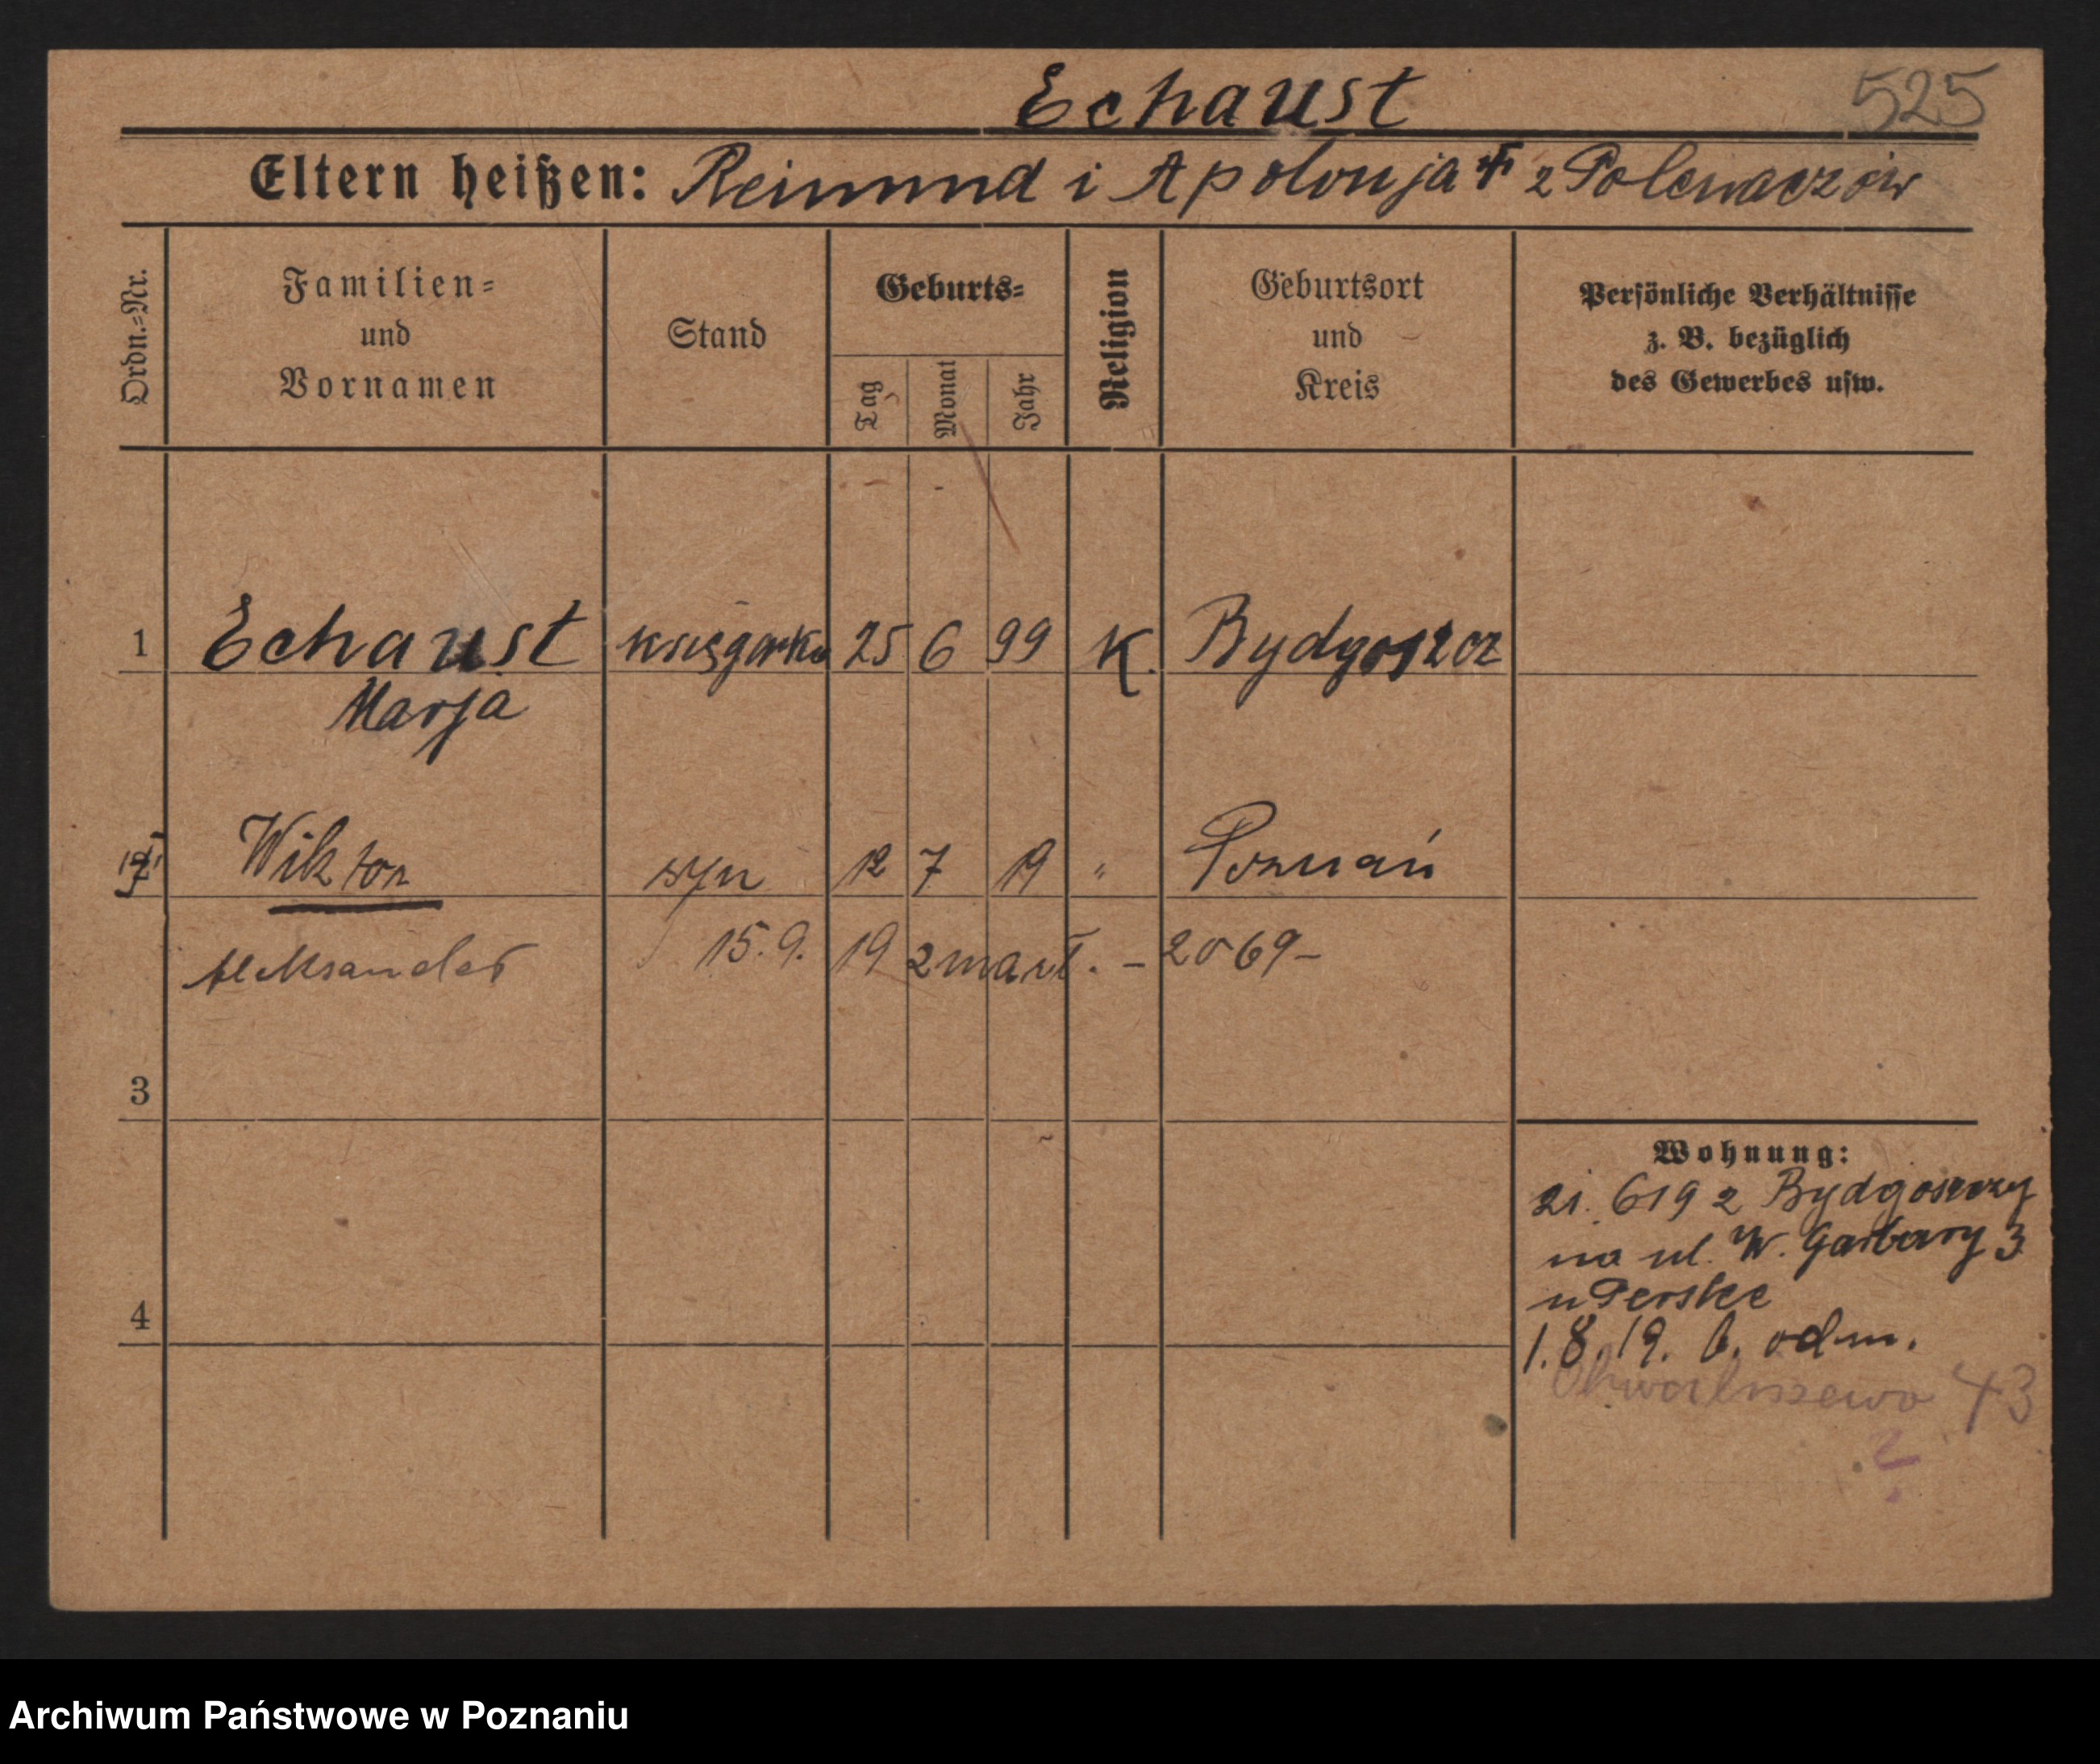 Echaust 525
Eltern heißen: Reimund i Apolonja z Polewaczów
Ordn.=Nr.
Familien=
und
Vornamen
Stand
Geburts=
Tag
Monat
Jahr
Religion
Geburtsort
und
Kreis
Persönliche Verhältnisse
z. B. bezüglich
des Gewerbes usw.
1 Echaust księgarka 25 6 99 K. Bydgoszcz
Marja
Wiktor syn 12 7 19 " Poznań
Aleksander 15.9. 19 zmarł. – 2069 –
3
4
Wohnung:
21. 6 19 z Bydgoszczy
na ul. W. Garbary 3
u Perske
1. 8. 19. b. odm.
Chwaliszewo 43
?
Archiwum Państwowe w Poznaniu